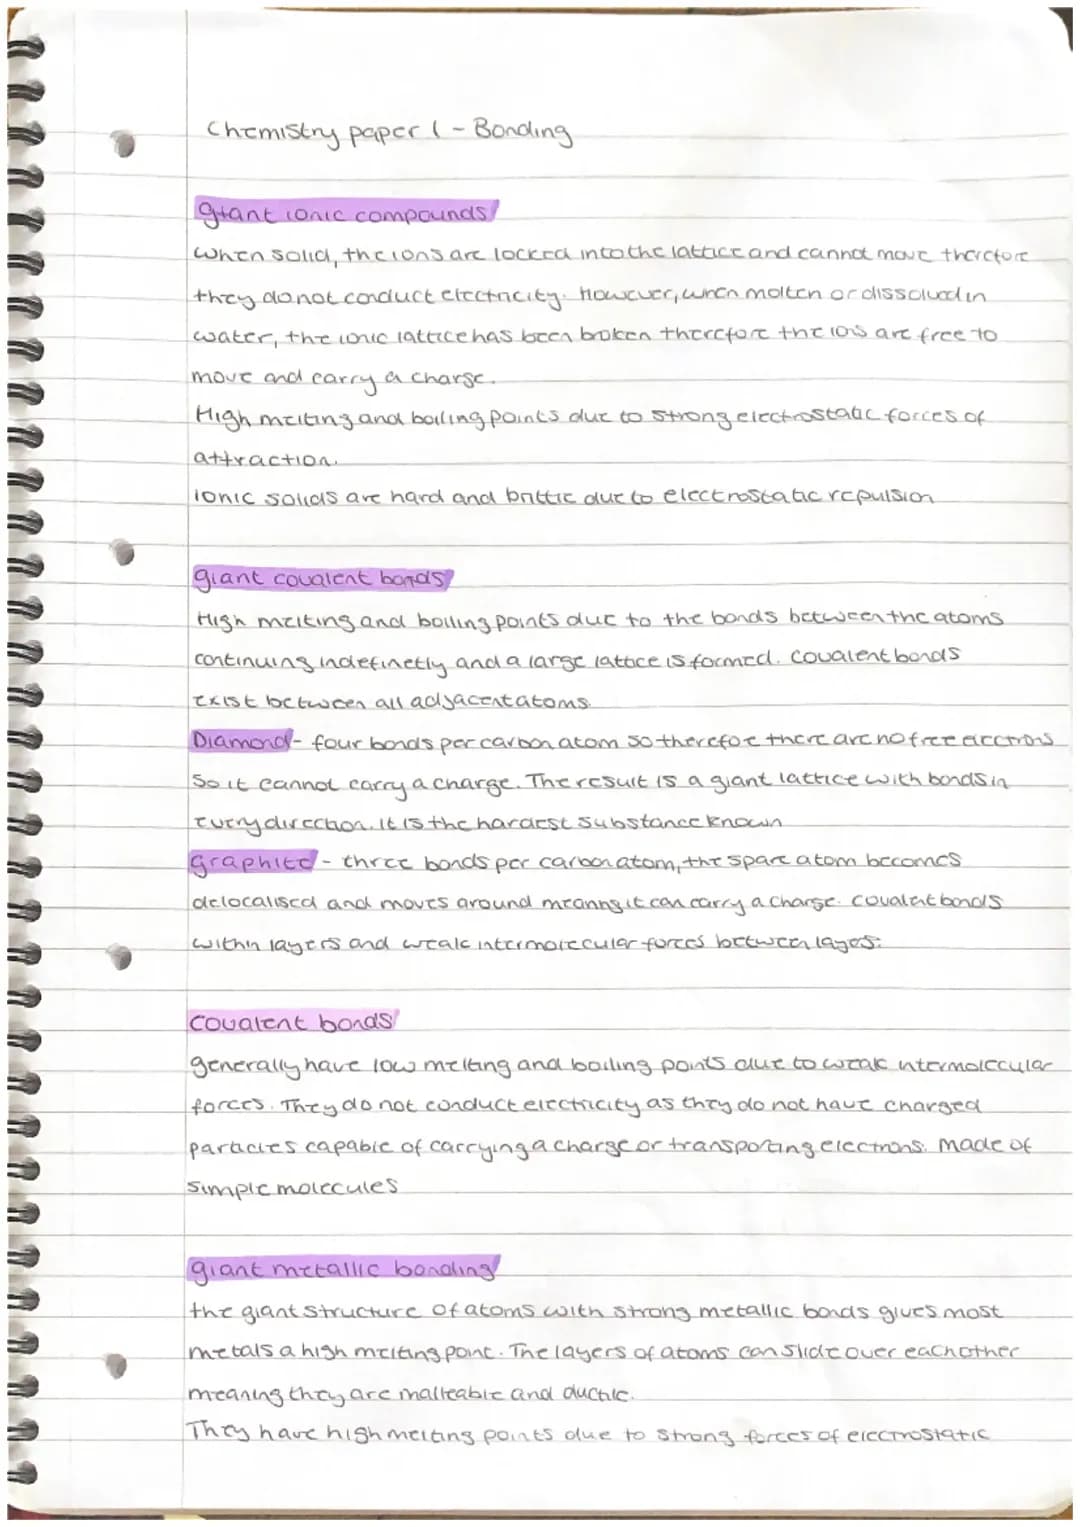 Chemistry paper 1 - Bonding
giant ionic compounds
When solid, the ions are locked into the lattice and cannot move therefore
they do not conduct electricity. However, when molten or dissolved in
water, the ionic lattice has been broken therefore the ions are free to
move and carry a charge.
High melting and boiling points due to strong electrostatic forces of
attraction.
ionic solids are hard and brittle due to electrostatic repulsion
giant covalent bonds
High melting and boiling points due to the bonds between the atoms
continuing indefinetly and a large lattice is formed. Covalent bonds
exist between all adjacent atoms.
Diamond - four bonds per carbon atom so therefore there are no free electrons
So it cannot carry a charge. The result is a giant lattice with bonds in
every direction. It is the hardest substance known
graphite - three bonds per carbon atom, the spare atom becomes
delocalised and moves around meaning it can carry a charge. Covalent bonds
within layers and weak intermolecular forces between layers.
Covalent bonds
generally have low melting and boiling points due to weak intermolecular
forces. They do not conduct electricity as they do not have charged
particles capable of carrying a charge or transporting electrons. Made of
simple molecules
giant metallic bonding
the giant structure of atoms with strong metallic bonds gives most
metals a high melting point. The layers of atoms can slide over eachother
meaning they are malleable and ductile.
They have high melting points due to strong forces of electrostatic